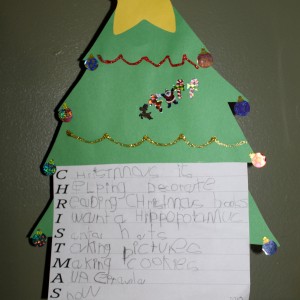 CHristmas is
HeLping Decorate
Reading Christmas books
I want a Hippopotamus
Santa hats
Taking picturs
Making cookies
A
Snow